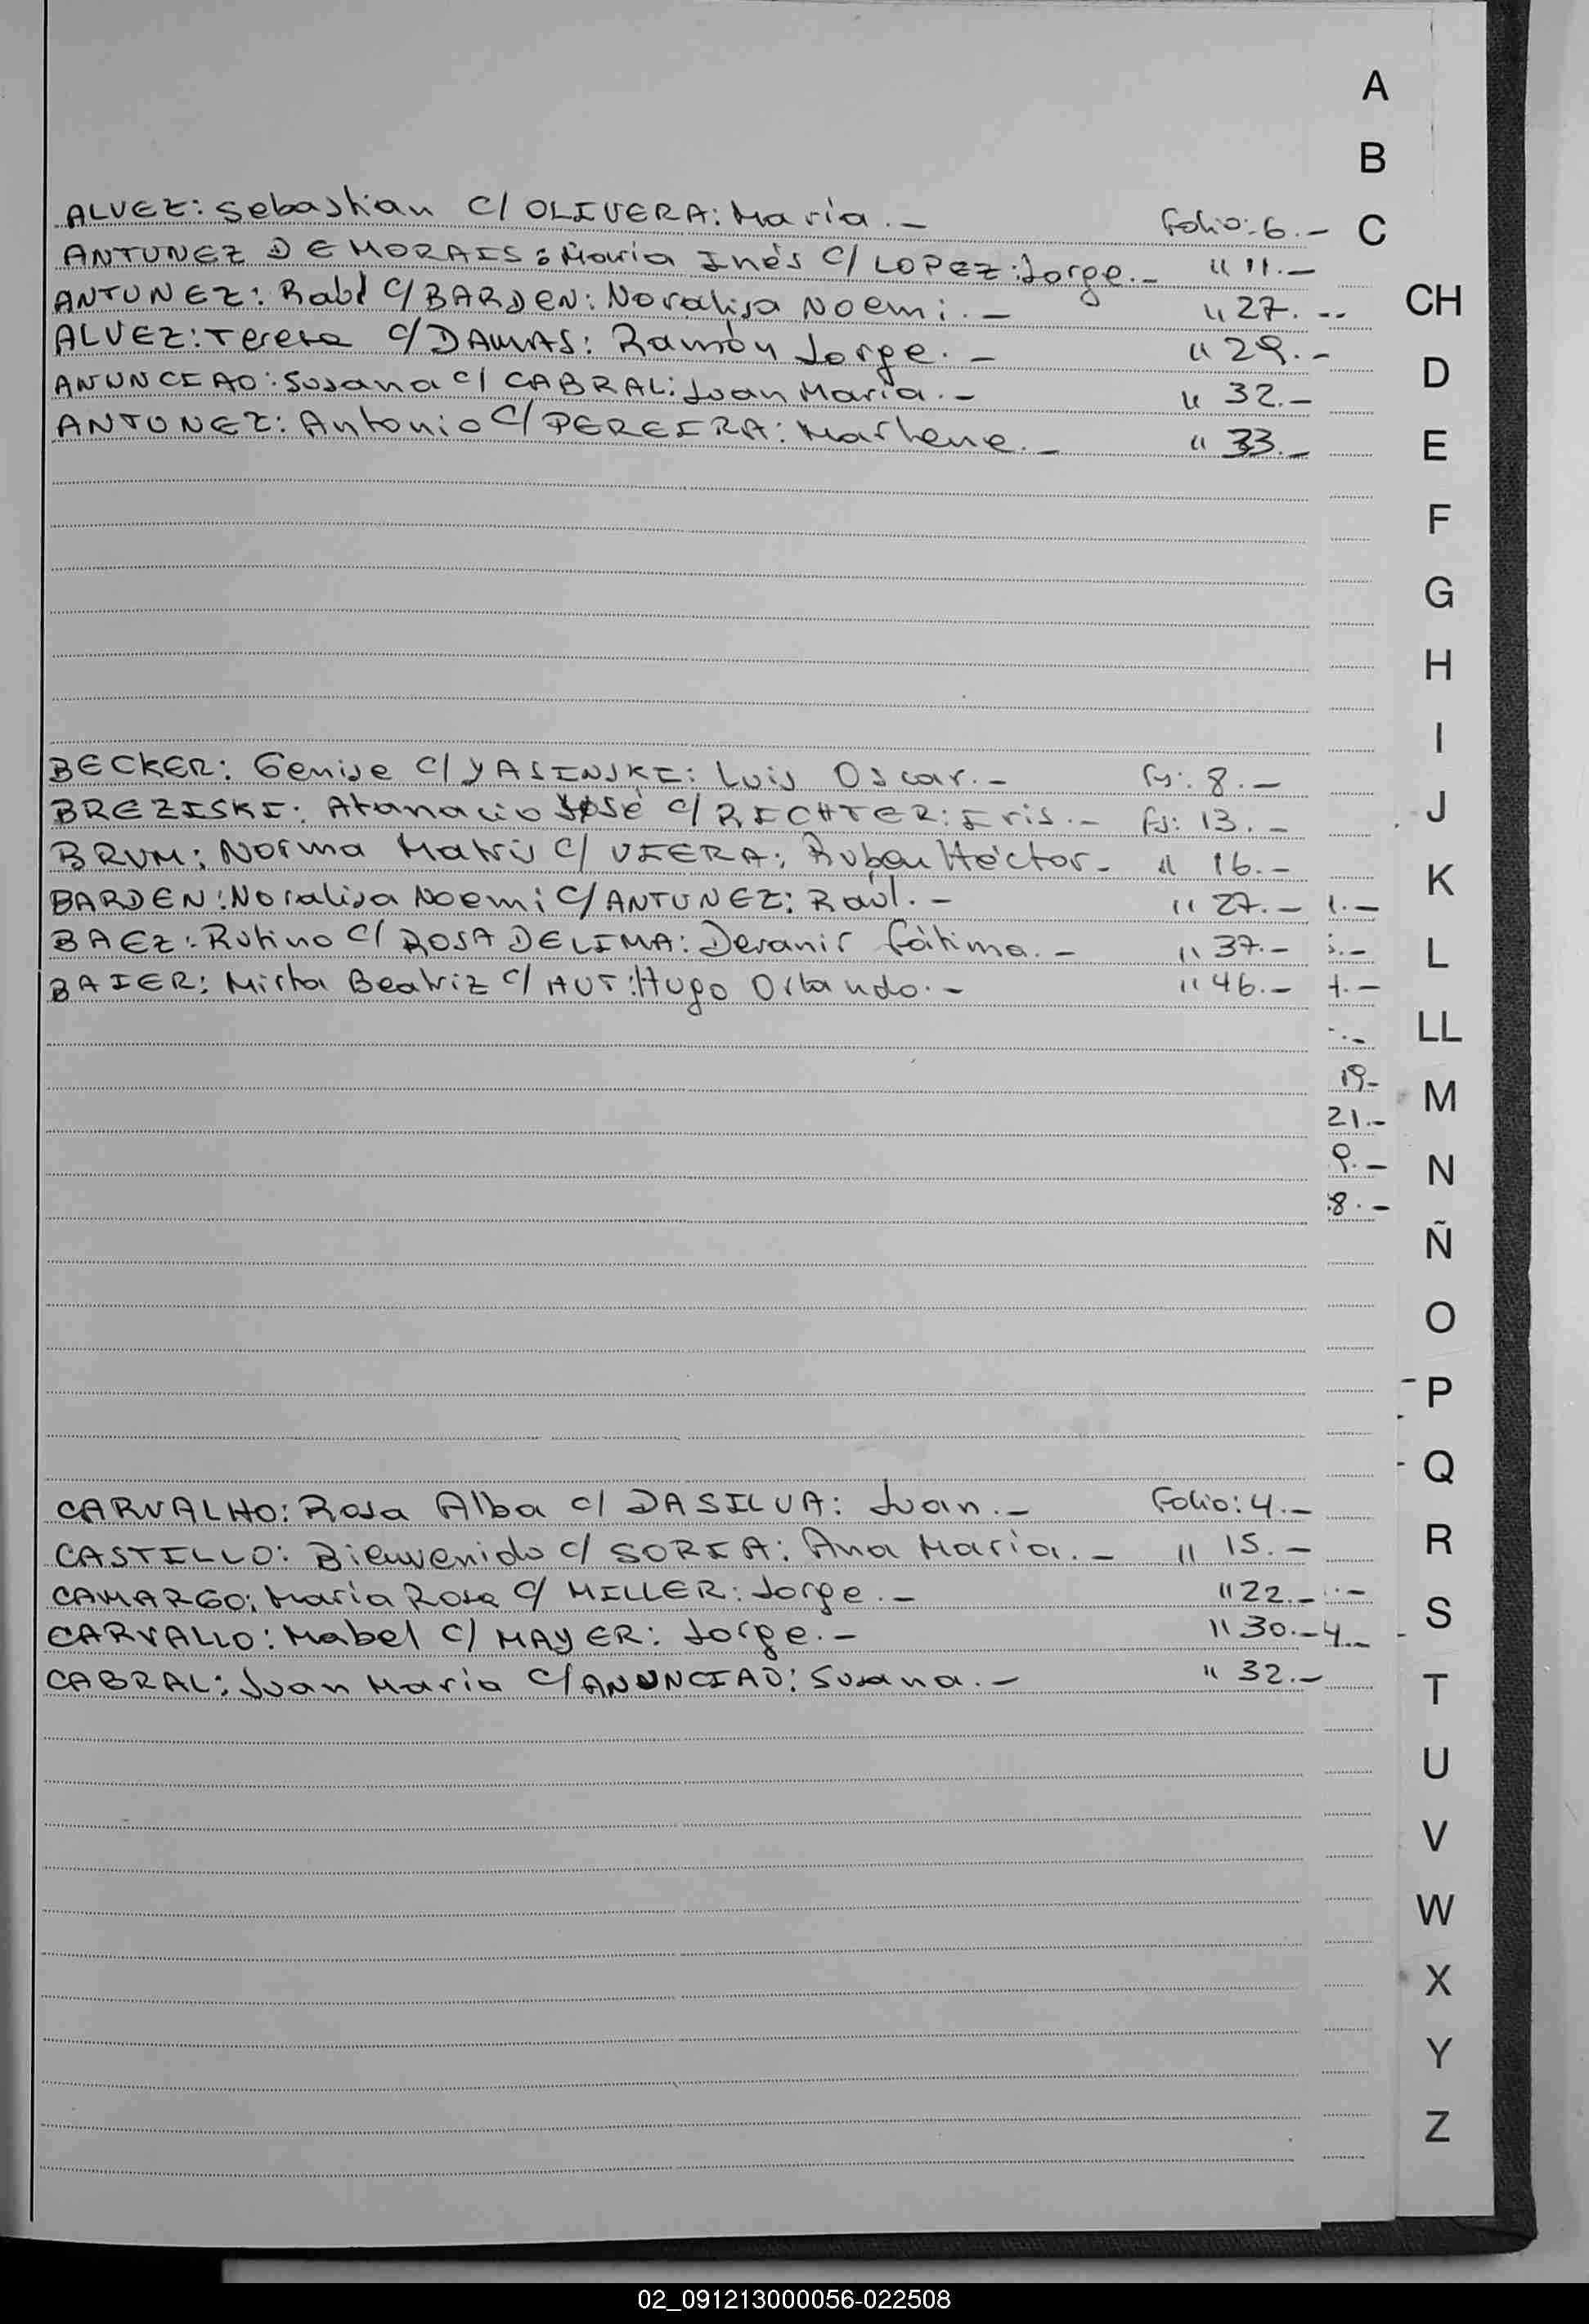 A
B
ALVEZ: Sebastian C/ OLIVERA: María.- Folio: 6.-
C
ANTUNEZ DE MORAIS: María Inés C/ LOPEZ: Jorge.- " 11.-
ANTUNEZ: Raúl C/ BARDEN: Noralisa Noemi.- " 27.--
CH
ALVEZ: Teresa C/ DAMAS: Ramón Jorge.- " 29.-
D
ANUNCIAO: Susana C/ CABRAL: Juan María.- " 32.-
ANTUNEZ: Antonio C/ PEREIRA: Marlene.- " 33.-
E
F
G
H
I
BECKER: Genise C/ YASINSKI: Luis Oscar.- Fs: 8.-
BREZISKI: Atanacio José C/ RICHTER: Iris.- Fs: 13.-
J
BRUM: Norma C/ VIERA: Ruben Héctor- " 16.-
K
BARDEN: Noralisa Noemi C/ ANTUNEZ: Raúl.- " 27.-
BAEZ: Rufino C/ ROSA DE LIMA: Devanir Fátima.- " 37.-
L
BAIER: Mirta Beatriz C/ HUT: Hugo Orlando.- " 46.-
LL
19-
M
21.-
9.-
N
8.-
Ñ
O
P
Q
CARVALHO: Rosa Alba C/ DASILVA: Juan.- Folio: 4.-
CASTILLO: Bienvenido C/ SORIA: Ana María.- " 15.-
R
CAMARGO: María Rosa C/ MILLER: Jorge.- " 22.-
S
CARVALLO: Mabel C/ MAYER: Jorge.- " 30.- 4.-
CABRAL: Juan María C/ ANUNCIAO: Susana.- " 32.-
T
U
V
W
X
Y
Z
02_091213000056-022508